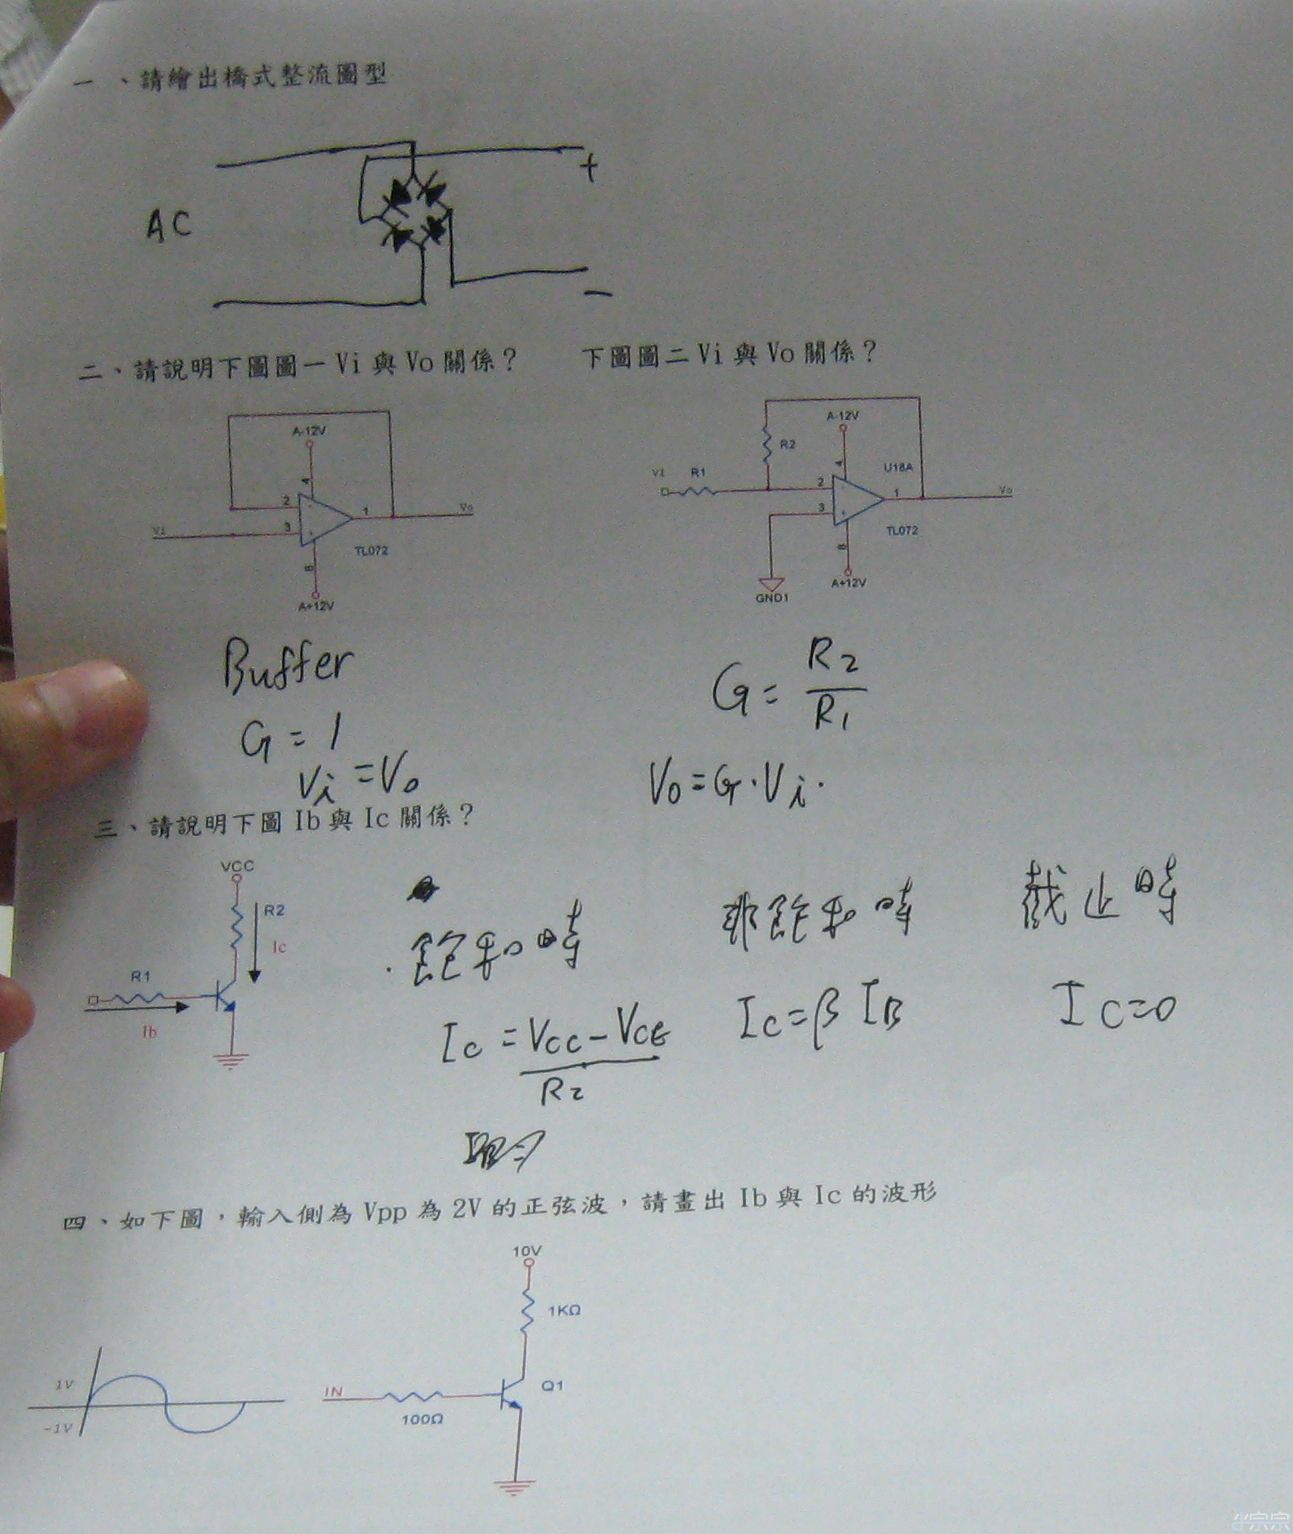 一、請繪出橋式整流圖型
AC
+
−
二、請說明下圖圖一 Vi 與 Vo 關係？ 下圖圖二 Vi 與 Vo 關係？
A-12V
4
2
3
1
Vi
Vo
TL072
8
A+12V
A-12V
R2
4
U18A
Vi
R1
2
3
1
Vo
TL072
8
A+12V
GND1
Buffer
G = 1
Vi = Vo
G = R2/R1
Vo = G·Vi.
三、請說明下圖 Ib 與 Ic 關係？
VCC
R2
Ic
R1
Ib
飽和時
Ic = VCC - VCE
R2
非飽和時
Ic = β IB
截止時
IC=0
四、如下圖，輸入側為 Vpp 為 2V 的正弦波，請畫出 Ib 與 Ic 的波形
10V
1KΩ
1V
-1V
IN
100Ω
Q1